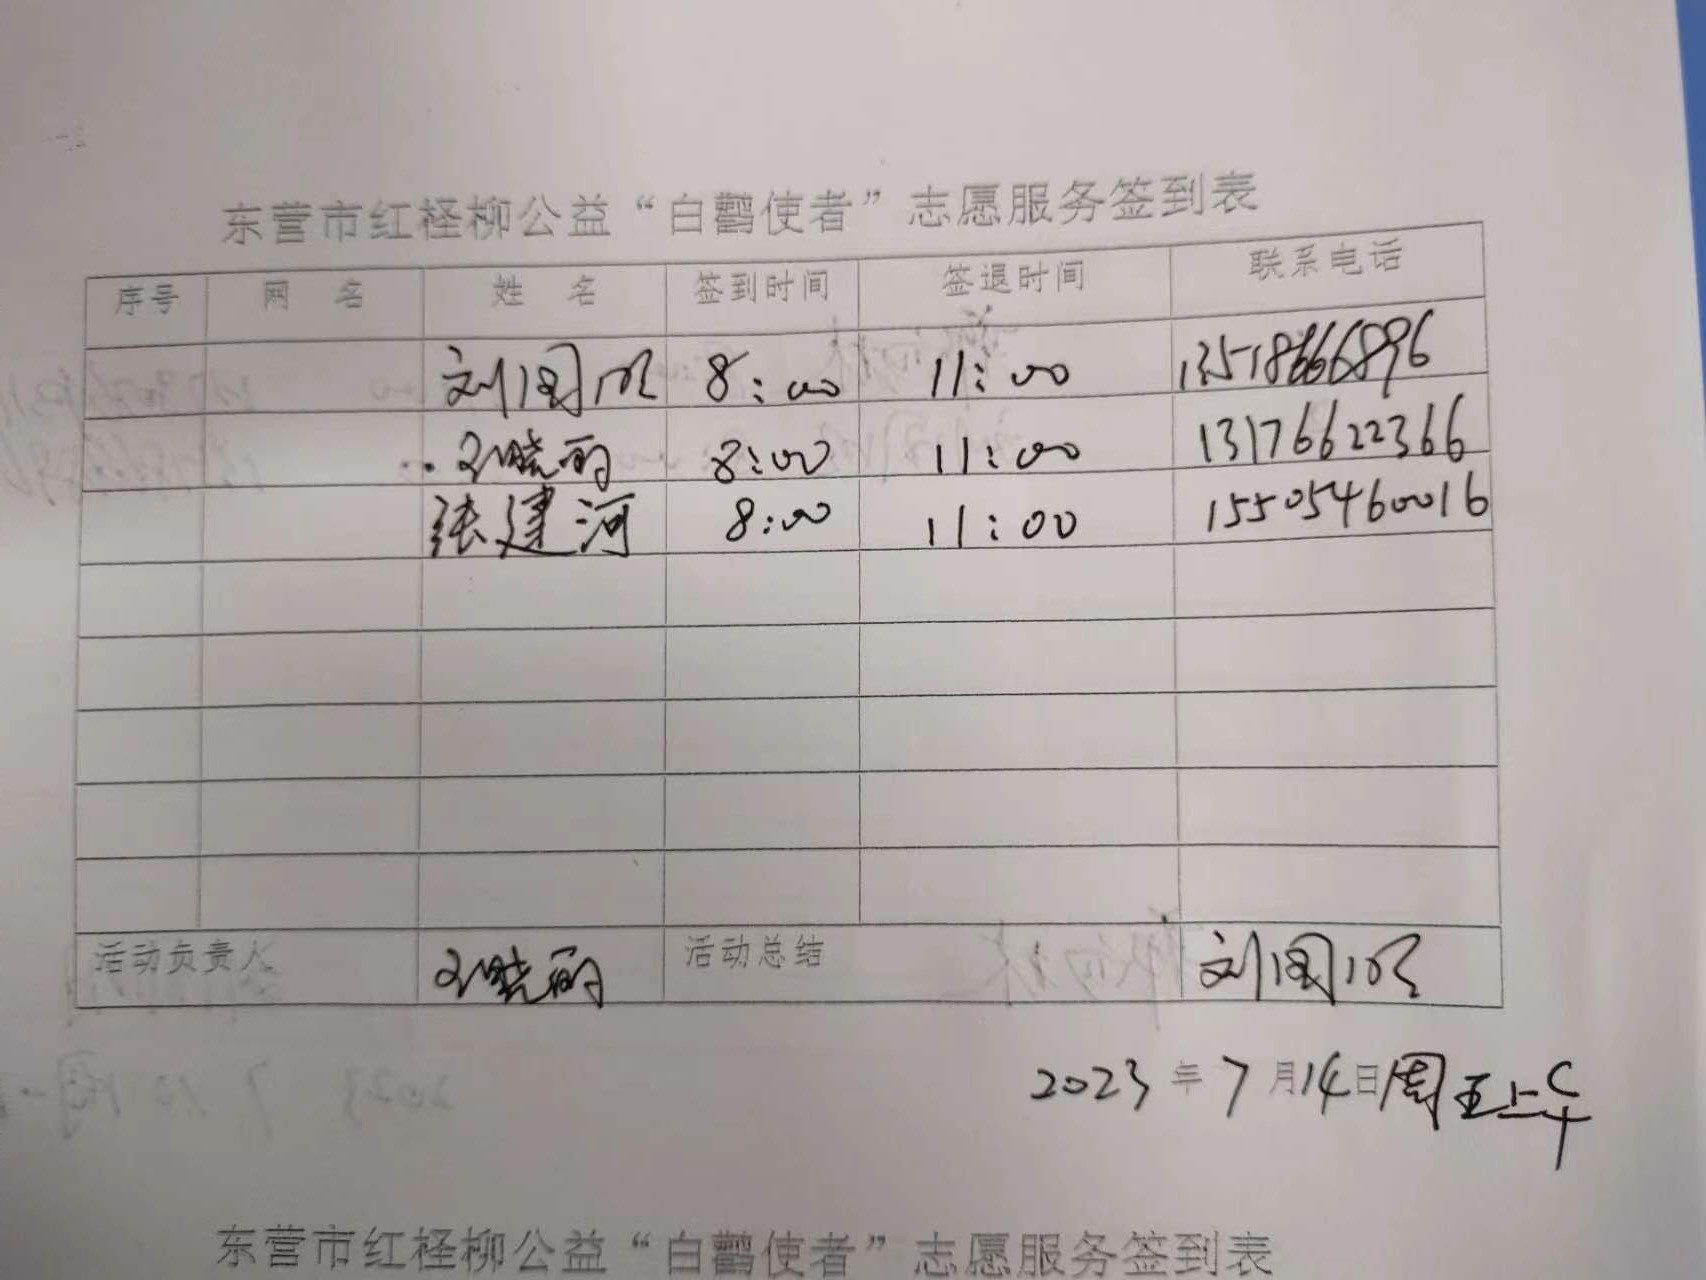 东营市红柽柳公益“白鹳使者”志愿服务签到表
序号 网 名 姓 名 签到时间 签退时间 联系电话
刘国 8:00 11:00
晓丽 8:00 11:00 13176622366
张建河 8:00 11:00 15505460016
活动负责人 晓丽 活动总结 刘国
2023年7月14日周五上午
东营市红柽柳公益“白鹳使者”志愿服务签到表